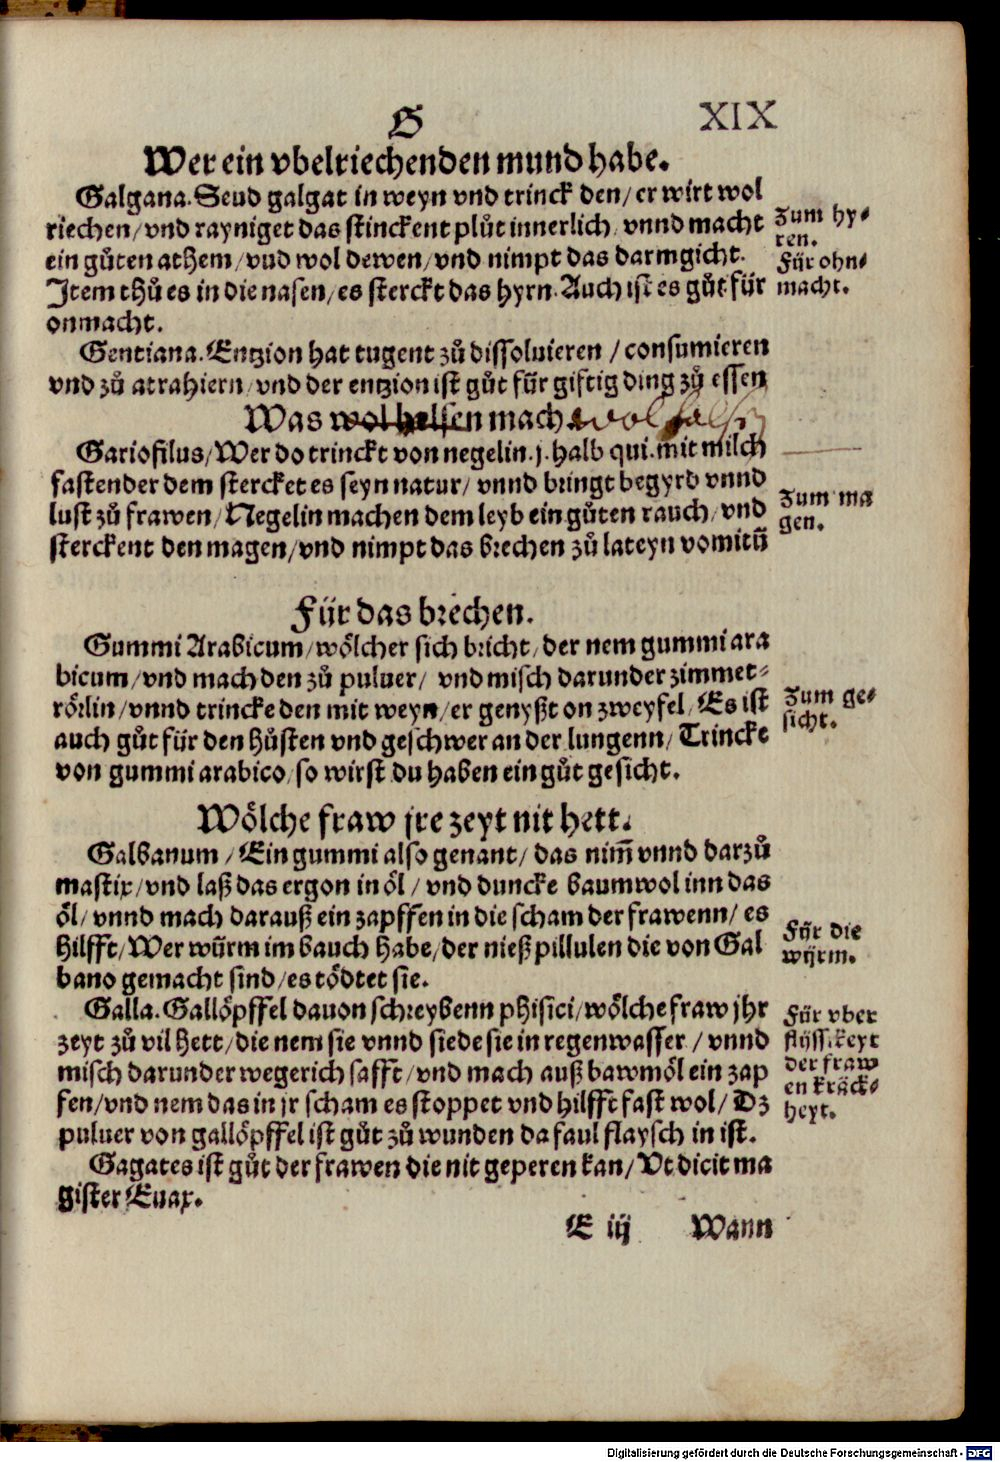 G
XIX
Wer ein vbelriechenden mund habe.
Galgana. Seud galgat in weyn vnd trinck den/ er wirt wol
riechen/ vnd rayniget das stinckent plůt innerlich/ vnnd macht
ein gůten athem/ vnd wol dewen/ vnd nimpt das darmgicht.
Item thů es in die nasen/ es sterckt das hyrn. Auch ist es gůt für
onmacht.
Zum hy-
ren.
Für ohn-
macht.
Gentiana. Entzion hat tugent zů dissoluieren / consumieren
vnd zů atrahiern/ vnd der entzion ist gůt für giftig ding zů essen
Was wol helsen mach
Gariofilus/ Wer do trinckt von negelin. j. halb qui. mit milch
fastender dem stercket es seyn natur/ vnnd bringt begyrd vnnd
lust zů frawen/ Negelin machen dem leyb ein gůten rauch/ vnd
sterckent den magen/ vnd nimpt das brechen zů lateyn vomitũ
Zum ma
gen.
Für das brechen.
Gummi Arabicum/ wölcher sich bricht/ der nem gummi ara
bicum/ vnd mach den zů puluer/ vnd misch darunder zimmet-
rörlin/ vnnd trincke den mit weyn/ er genyßt on zweyfel/ Es ist
auch gůt für den hůsten vnd geschwer an der lungenn/ Trincke
von gummi arabico/ so wirst du haben ein gůt gesicht.
Zum ge-
sicht.
Wölche fraw jre zeyt nit hett.
Galbanum / Ein gummi also genant/ das nim̃ vnnd darzů
mastix/ vnd laß das ergon in öl / vnd duncke baumwol inn das
öl/ vnnd mach darauß ein zapffen in die scham der frawenn/ es
hilfft/ Wer würm im bauch habe/ der nieß pillulen die von Gal
bano gemacht sind/ es tödtet sie.
Für die
würm.
Galla. Gallöpffel dauon schreybenn phisici/ wölche fraw jhr
zeyt zů vil hett/ die nem sie vnnd siede sie in regenwasser / vnnd
misch darunder wegerich safft/ vnd mach auß bawmöl ein zap
fen/ vnd nem das in jr scham es stoppet vnd hilfft fast wol/ Dz
puluer von gallöpffel ist gůt zů wunden da faul flaysch in ist.
Für vber
flüssikeyt
der fraw
en kräck-
heyt.
Gagates ist gůt der frawen die nit geperen kan/ Vt dicit ma
gister Euax.
E iij Wann
Digitalisierung gefördert durch die Deutsche Forschungsgemeinschaft - DFG